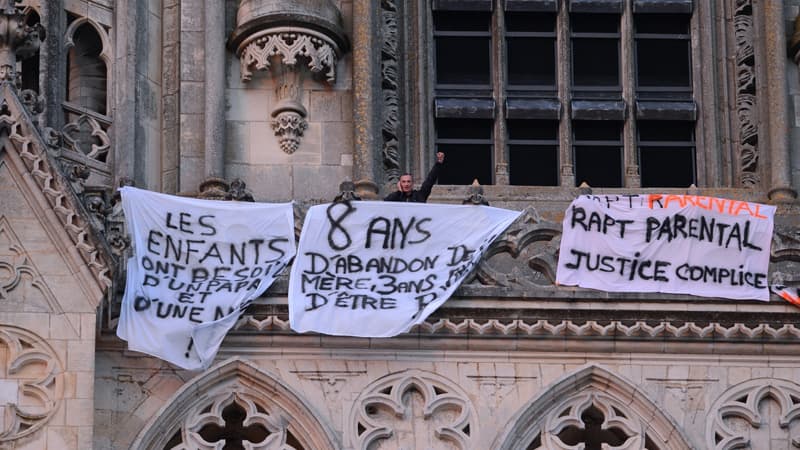 LES
ENFANTS
ONT BESOIN
D'UN PAPA
ET
D'UNE
!
8 ANS
D'ABANDON DE
MÈRE, 3 ANS
D'ÊTRE
RAPT PARENTAL
JUSTICE COMPLICE